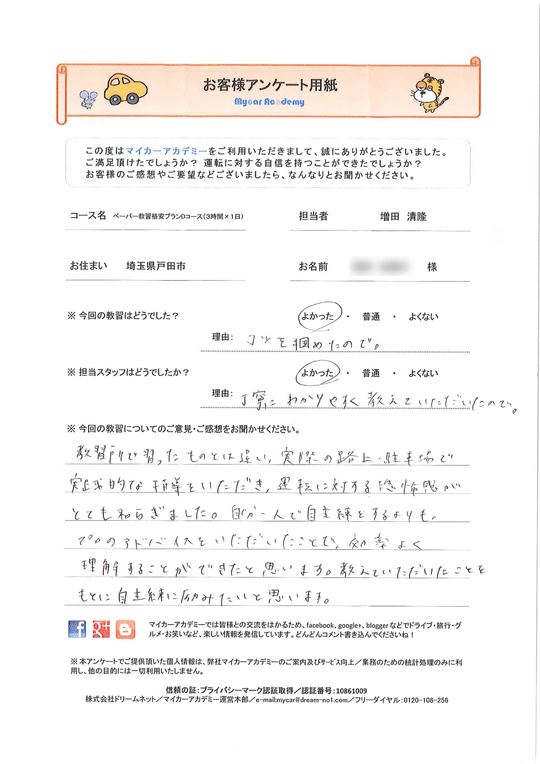 お客様アンケート用紙
Mycar Academy
この度はマイカーアカデミーをご利用いただきまして、誠にありがとうございました。
ご満足頂けたでしょうか? 運転に対する自信を持つことができたでしょうか?
お客様のご感想やご要望などございましたら、なんなりとお聞かせください。
コース名 ペーパー教習格安プランDコース(3時間×1日) 担当者 増田 清隆
お住まい 埼玉県戸田市 お名前 様
※ 今回の教習はどうでした? よかった ・ 普通 ・ よくない
理由: コツを掴めたので。
※ 担当スタッフはどうでしたか? よかった ・ 普通 ・ よくない
理由: 丁寧にわかりやすく教えていただいたので。
※ 今回の教習についてのご意見・ご感想をお聞かせください。
教習所で習ったものとは違い、実際の路上・駐車場で
実践的な指導をいただき、運転に対する恐怖感が
とても和らぎました。自分一人で自主練をするよりも、
プロのアドバイスをいただいたことで、効率よく
理解することができたと思います。教えていただいたことを
もとに自主練に励みたいと思います。
マイカーアカデミーでは皆様との交流をはかるため、facebook、google+、bloggerなどでドライブ・旅行・グ
ルメ・お笑いなど、楽しい情報を発信しています。どんどんコメント書き込んでくださいね!
※本アンケートでご提供頂いた個人情報は、弊社マイカーアカデミーのご案内及びサービス向上/業務のための統計処理のみに利
用し、他の目的には一切利用いたしません。
信頼の証:プライバシーマーク認証取得/認証番号:10861009
株式会社ドリームネット/マイカーアカデミー運営本部/e-mail:mycar@dream-no1.com/フリーダイヤル:0120-106-256